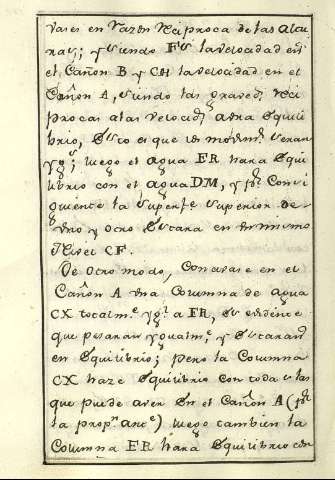 vases en razon reciproca de las altu
ras; y siendo FS la velocidad en
el Cañon B y CH la velocidad en el
Cañon A, siendo las graved.s reci
procas a las velocid.s avra equili
brio, esto es que los movim.tos seran
yg.s; luego el agua ER hara equi
librio con el agua DM, y p.r consi
guiente la superfi.e superior de
uno y otro estara en un mismo
Nivel CF.
De otro modo, Concivase en el
Cañon A una Columna de agua
CX totalm.e yg.l a FR, es evidente
que pesaran ygualm.e y estaran
en equilibrio; pero la Columna
CX haze equilibrio con todas las
que puede aver en el Cañon A (p.r
la prop.n ant.e) luego tambien la
Columna ER hara equilibrio con